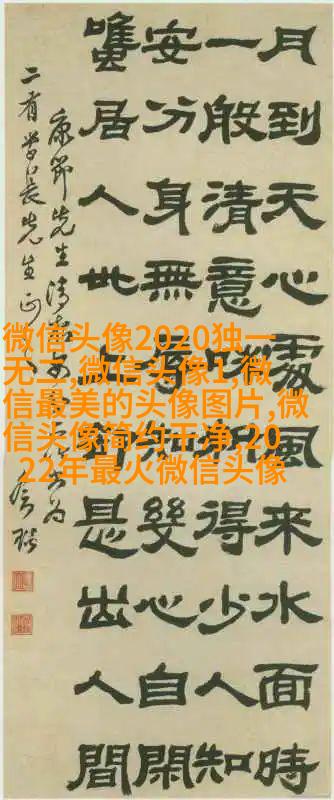 月到天心處風來水面時
一般清意味料得少人知
安分身無辱知幾心自閑
雖居人世上卻是出人間
康節先生清
二有學長先生正
微信头像2020独一
无二,微信头像1,微
信最美的头像图片,微
信头像简约干净,20
22年最火微信头像